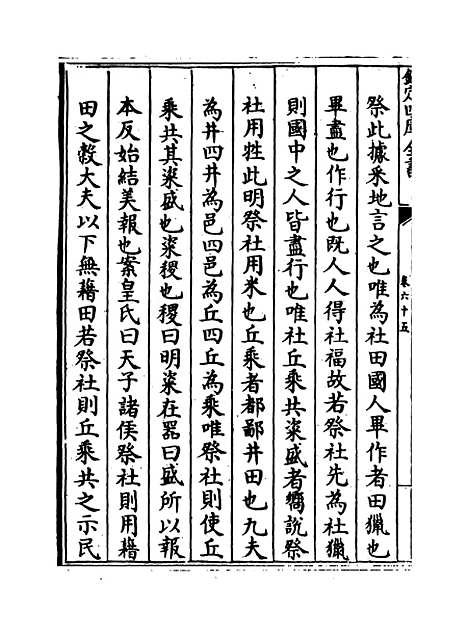 欽定四庫全書
卷六十五
祭此據采地言之也唯為社田國人畢作者田獵也
畢盡也作行也既人人得社福故若祭社先為社獵
則國中之人皆盡行也唯社丘乘共粢盛者嚮說祭
社用牲此明祭社用米也丘乘者都鄙井田也九夫
為井四井為邑四邑為丘四丘為乘唯祭社則使丘
乘共其粢盛也粢稷也稷曰明粢在器曰盛所以報
本反始結美報也案皇氏曰天子諸侯祭社則用藉
田之榖大夫以下無藉田若祭社則丘乘共之示民